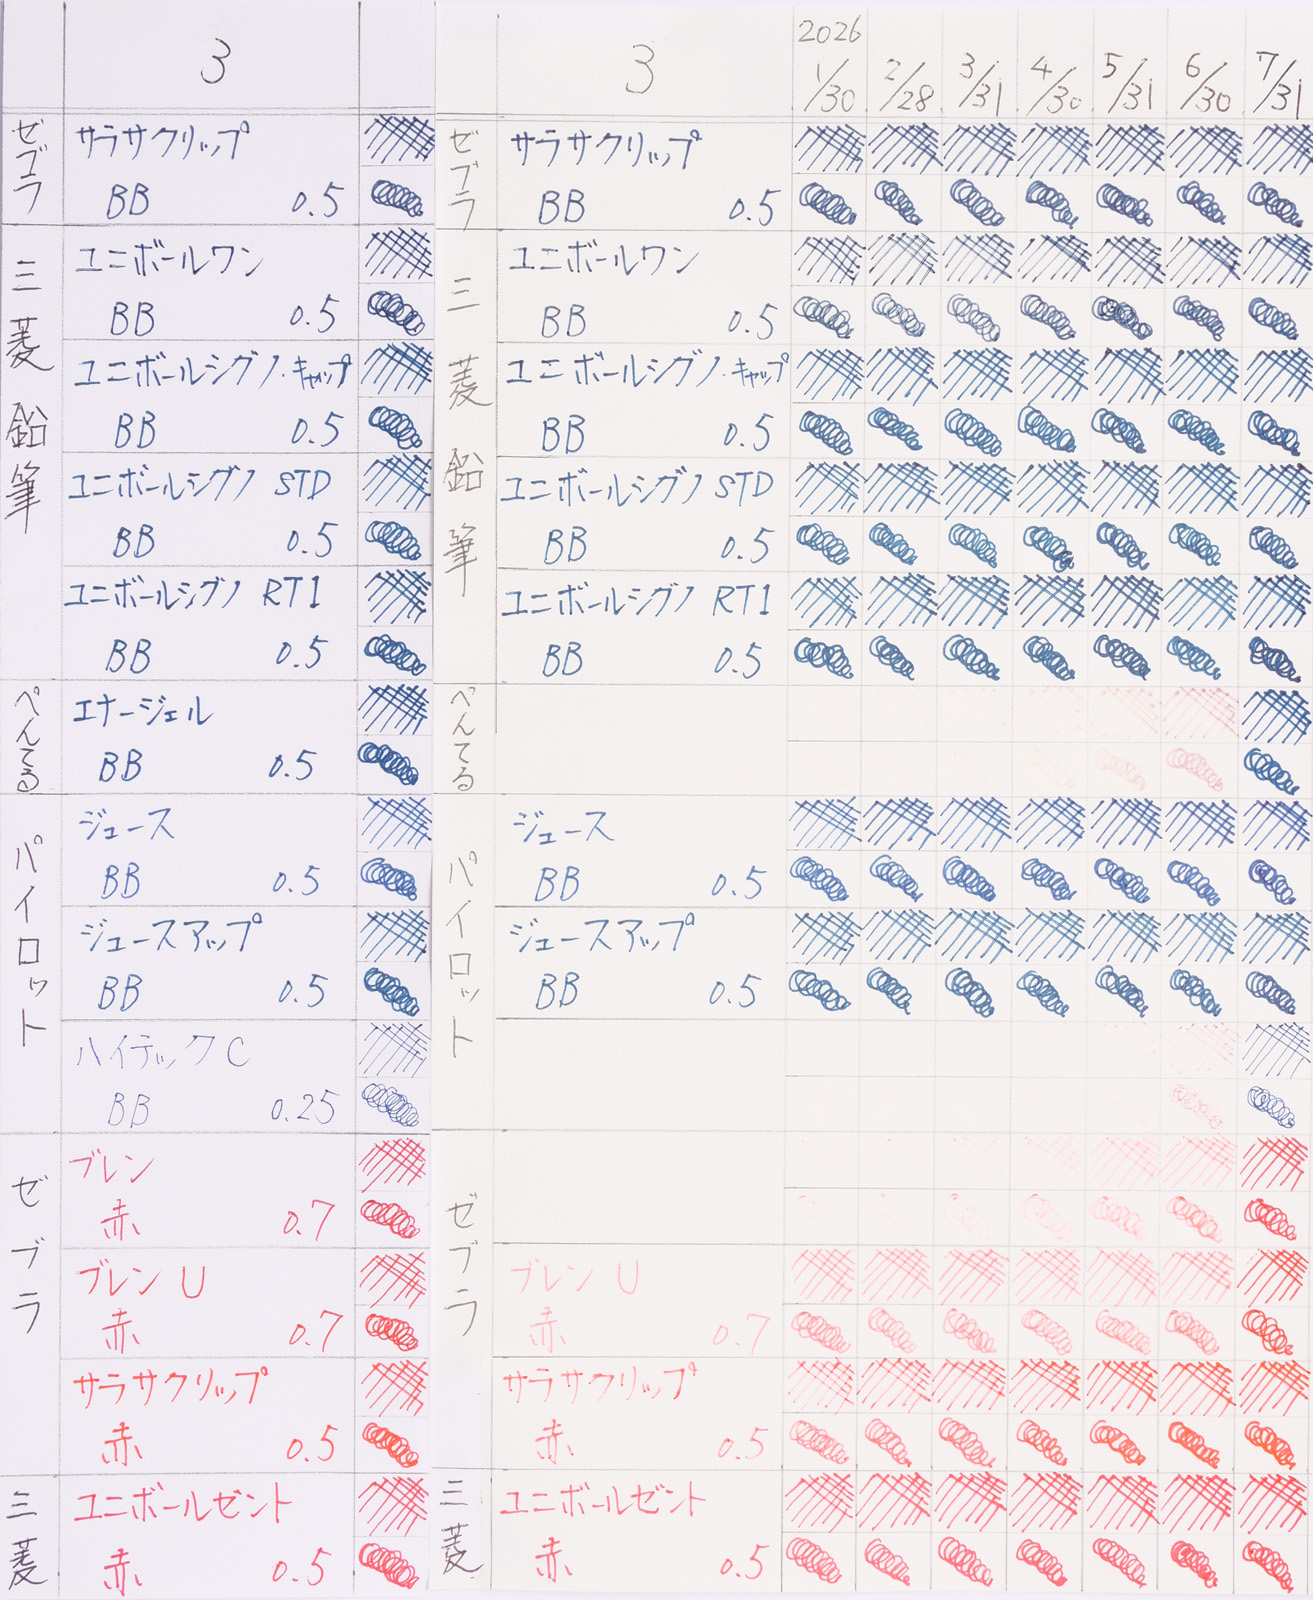 3
ゼブラ
サラサクリップ
BB 0.5
三菱鉛筆
ユニボールワン
BB 0.5
ユニボールシグノ・キャップ
BB 0.5
ユニボールシグノ STD
BB 0.5
ユニボールシグノ RT1
BB 0.5
ぺんてる
エナージェル
BB 0.5
パイロット
ジュース
BB 0.5
ジュースアップ
BB 0.5
ハイテックC
BB 0.25
ゼブラ
ブレン
赤 0.7
ブレン U
赤 0.7
サラサクリップ
赤 0.5
三菱
ユニボールゼント
赤 0.5
3
2026
1/30 2/28 3/31 4/30 5/31 6/30 7/31
ゼブラ
サラサクリップ
BB 0.5
三菱鉛筆
ユニボールワン
BB 0.5
ユニボールシグノ・キャップ
BB 0.5
ユニボールシグノ STD
BB 0.5
ユニボールシグノ RT1
BB 0.5
ぺんてる
パイロット
ジュース
BB 0.5
ジュースアップ
BB 0.5
ゼブラ
ブレン U
赤 0.7
サラサクリップ
赤 0.5
三菱
ユニボールゼント
赤 0.5